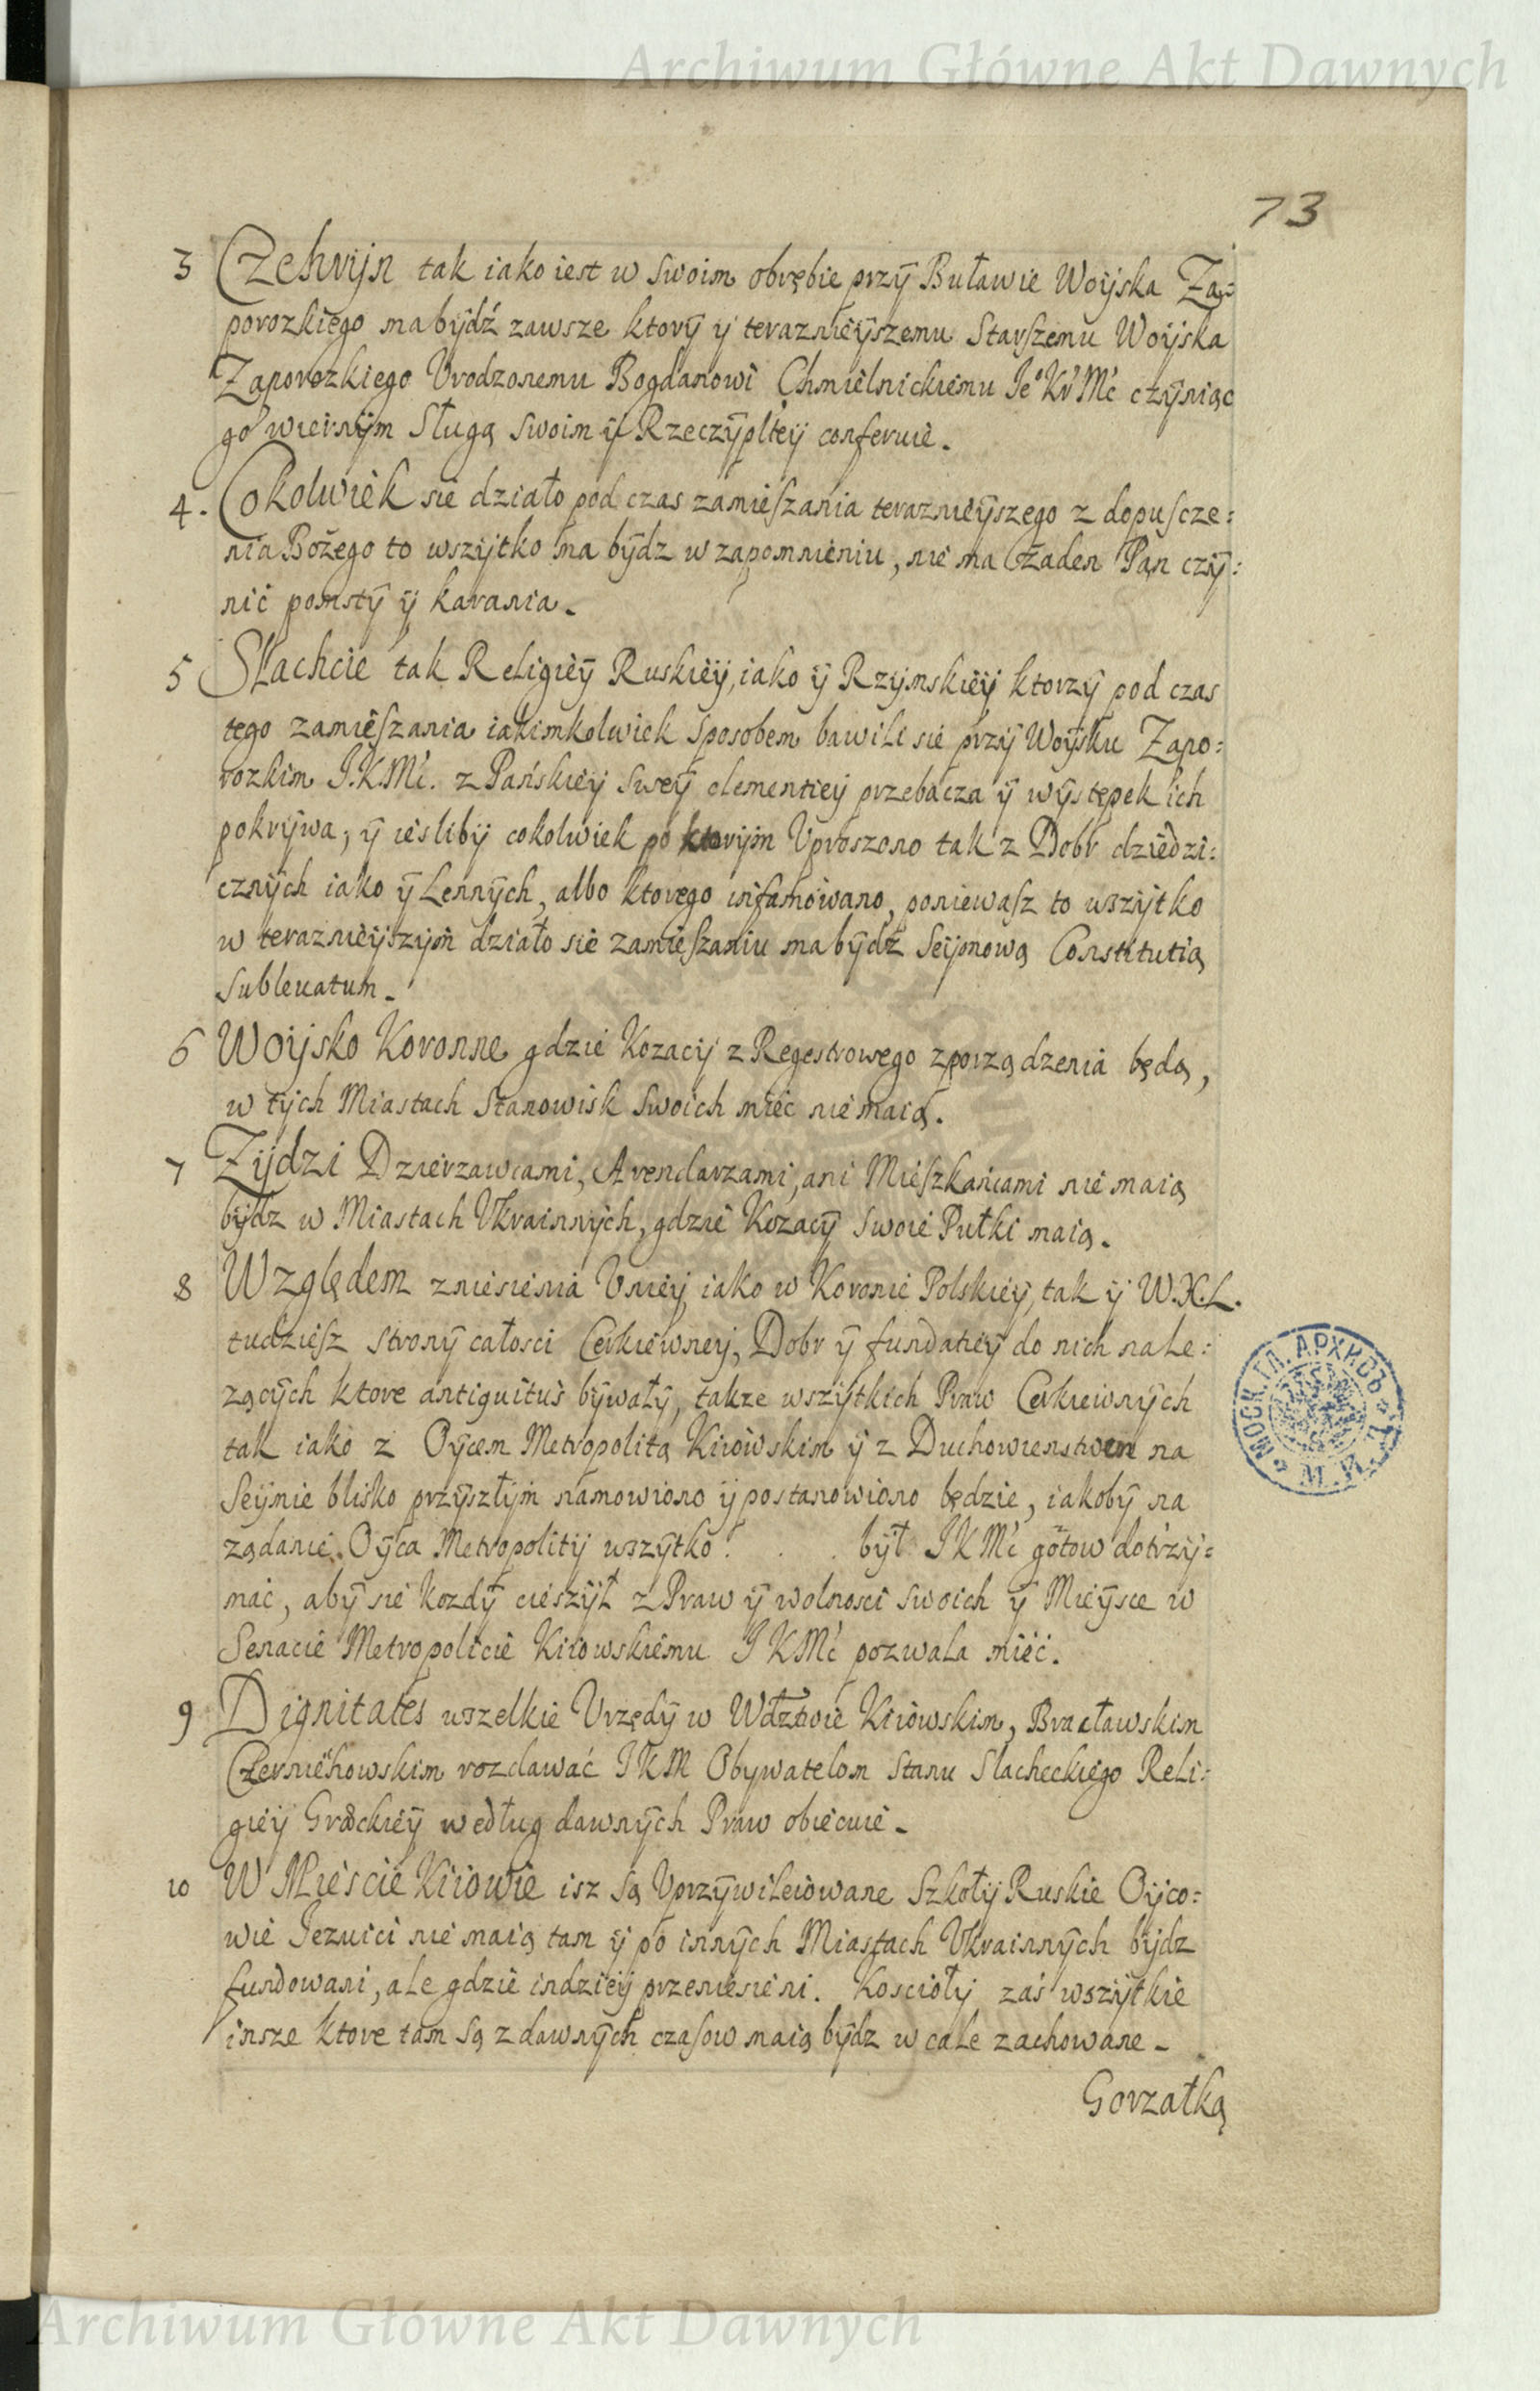 Archiwum Główne Akt Dawnych
73
3 Czehryn tak iako iest w swoim obrębie przÿ Buławie Woÿska Za=
porozkiego ma bÿdź zawsze ktorÿ ÿ teraznieÿszemu Starszemu Woÿska
Zaporozkiego Vrodzonemu Bogdanowi Chmielnickiemu Je° Kr Mć czÿniąc
go wiernÿm Sługą swoim ÿ Rzeczÿpltey conferuie.
4. Cokolwiek sie działo pod czas zamieszania teraznieÿszego z dopuscze=
nia Bożego to wszÿtko ma bÿdz w zapomnieniu, nie ma żaden Pan czÿ=
nić pomstÿ ÿ karania.
5 Slachcie tak Religieÿ Ruskieÿ, iako ÿ Rzÿmskieÿ ktorzÿ pod czas
tego zamieszania iakimkolwiek sposobem bawili sie przÿ Woÿsku Zapo=
rozkim J.K.Mć. z Pańskieÿ sweÿ clementieÿ przebacza ÿ wÿstępek ich
pokrÿwa, ÿ iesliby cokolwiek po ktorÿm Vproszono tak z Dobr dziedzi=
cznÿch iako ÿ Lennÿch, albo ktorego infamowano, poniewasz to wszÿtko
w teraznieÿszÿm działo sie zamieszaniu ma bÿdź Seÿmową Constitutią
subleuatum.
6 Woÿsko Koronne gdzie Kozacÿ z Regestrowego zporządzenia będą,
w tÿch Miastach Stanowisk swoich miec nie maią.
7 Zÿdzi Dzierzawcami, Arendarzami, ani Mieszkańcami nie maią
bÿdz w Miastach Vkrainnÿch, gdzie Kozacÿ swoie Pułki maią.
8 Względem zniesienia Vnieÿ iako w Koronie Polskieÿ, tak ÿ W.X.L.
tudziesz stronÿ całosci Cerkiewneÿ, Dobr ÿ fundatieÿ do nich nale=
zącÿch ktore antiquitus bÿwałÿ, takze wszÿtkich Praw Cerkiewnÿch
tak iako z Oÿcem Metropolitą Kiiowskim ÿ z Duchowienstwem na
Seÿmie blisko przÿszłÿm namowiono ÿ postanowiono będzie, iakobÿ na
ządanie Oÿca Metropolitÿ wszÿtko . . . bÿł JKMć gotow dotrzÿ=
mać, abÿ sie kozdÿ cieszÿł z Praw ÿ wolnosci swoich ÿ Mieÿsce w
Senacie Metropolicie Kiiowskiemu JKMć pozwala mieć.
9 Dignitates wszelkie Vrzędÿ w Wdztwie Kiiowskim, Bracławskim
Czerniehowskim rozdawać JKM Obywatelom Stanu Slacheckiego Reli=
gieÿ Græckieÿ według dawnÿch Praw obiecuie.
10 W Miescie Kiiowie isz są Vprzÿwileiowane Szkołÿ Ruskie Oÿco=
wie Jezuici nie maią tam ÿ po innÿch Miastach Vkrainnÿch bÿdz
fundowani, ale gdzie indzieÿ przeniesieni. Kosciołÿ zaś wszÿtkie
insze ktore tam są z dawnÿch czasow maią bÿdz w cale zachowane.
Gorzałką
МОСК. ГЛ. АРХИВЪ
Archiwum Główne Akt Dawnych